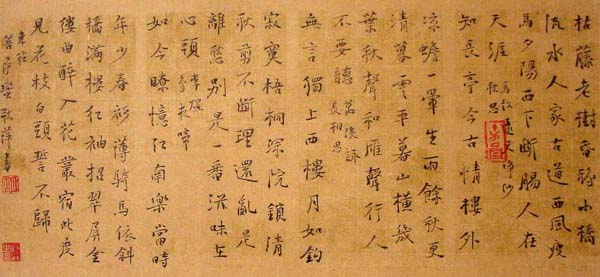 枯藤老樹昏鴉小橋
流水人家古道西風瘦
馬夕陽西下斷腸人在
天涯 馬致遠天淨沙 秋思
短長亭今古情樓外
涼蟾一暈生雨餘秋更
清暮雲平暮山橫幾
葉秋聲和雁聲行人
不要聽 萬俟詠 長相思
無言獨上西樓月如鉤
寂寞梧桐深院鎖清
秋剪不斷理還亂是
離愁別是一番滋味在
心頭 李煜 夜啼
如今卻憶江南樂當時
年少春衫薄騎馬依斜
橋滿樓紅袖招翠屏金
僂曲醉入花叢宿此度
見花枝白頭誓不歸
韋莊
菩薩蠻 秋萍書